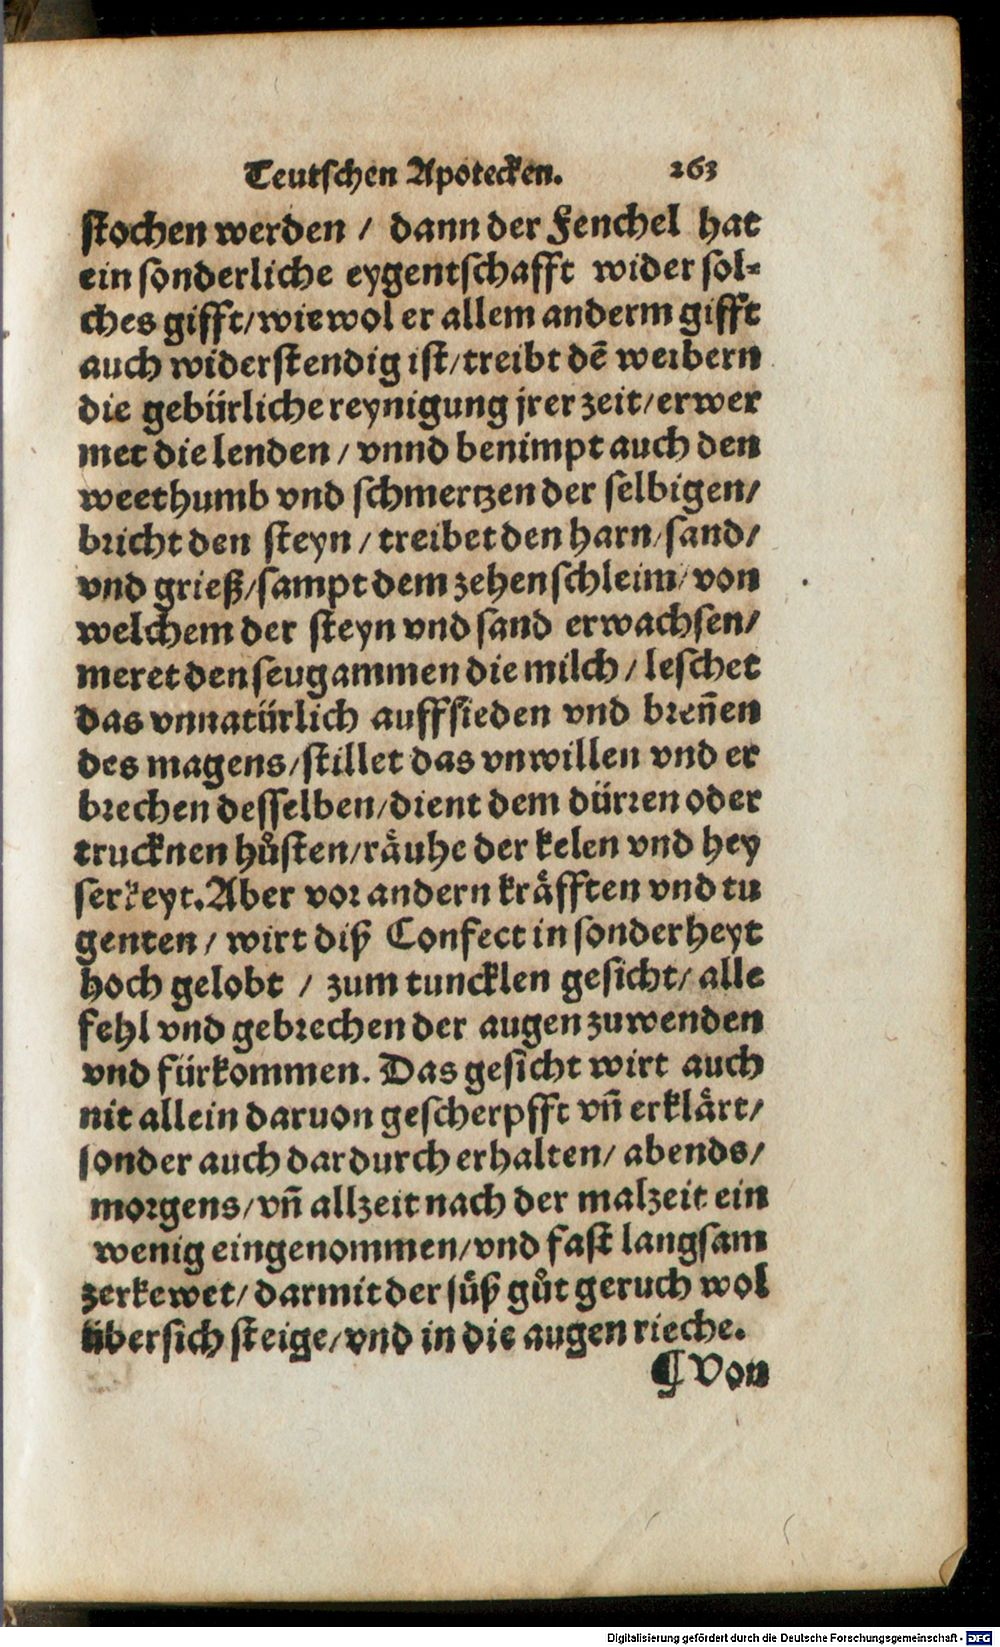 Teutschen Apotecken. 263
stochen werden / dann der Fenchel hat
ein sonderliche eygentschafft wider sol⸗
ches gifft/wiewol er allem anderm gifft
auch widerstendig ist/treibt dē weibern
die gebürliche reynigung jrer zeit/erwer
met die lenden / vnnd benimpt auch den
weethumb vnd schmertzen der selbigen/
bricht den steyn / treibet den harn/sand/
vnd grieß/sampt dem zehen schleim/von
welchem der steyn vnd sand erwachsen/
meret den seugammen die milch / leschet
das vnnatürlich auffsieden vnd breñen
des magens/stillet das vnwillen vnd er
brechen desselben/dient dem dürren oder
trucknen hůsten/räuhe der kelen vnd hey
serkeyt. Aber vor andern kräfften vnd tu
genten / wirt diß Confect in sonderheyt
hoch gelobt / zum tuncklen gesicht/ alle
fehl vnd gebrechen der augen zuwenden
vnd fürkommen. Das gesicht wirt auch
nit allein daruon gescherpfft vñ erklärt/
sonder auch dardurch erhalten/ abends/
morgens/vñ allzeit nach der malzeit ein
wenig eingenommen/vnd fast langsam
zerkewet/ darmit der süß gůt geruch wol
übersich steige/vnd in die augen rieche.
¶ Von
Digitalisierung gefördert durch die Deutsche Forschungsgemeinschaft - DFG